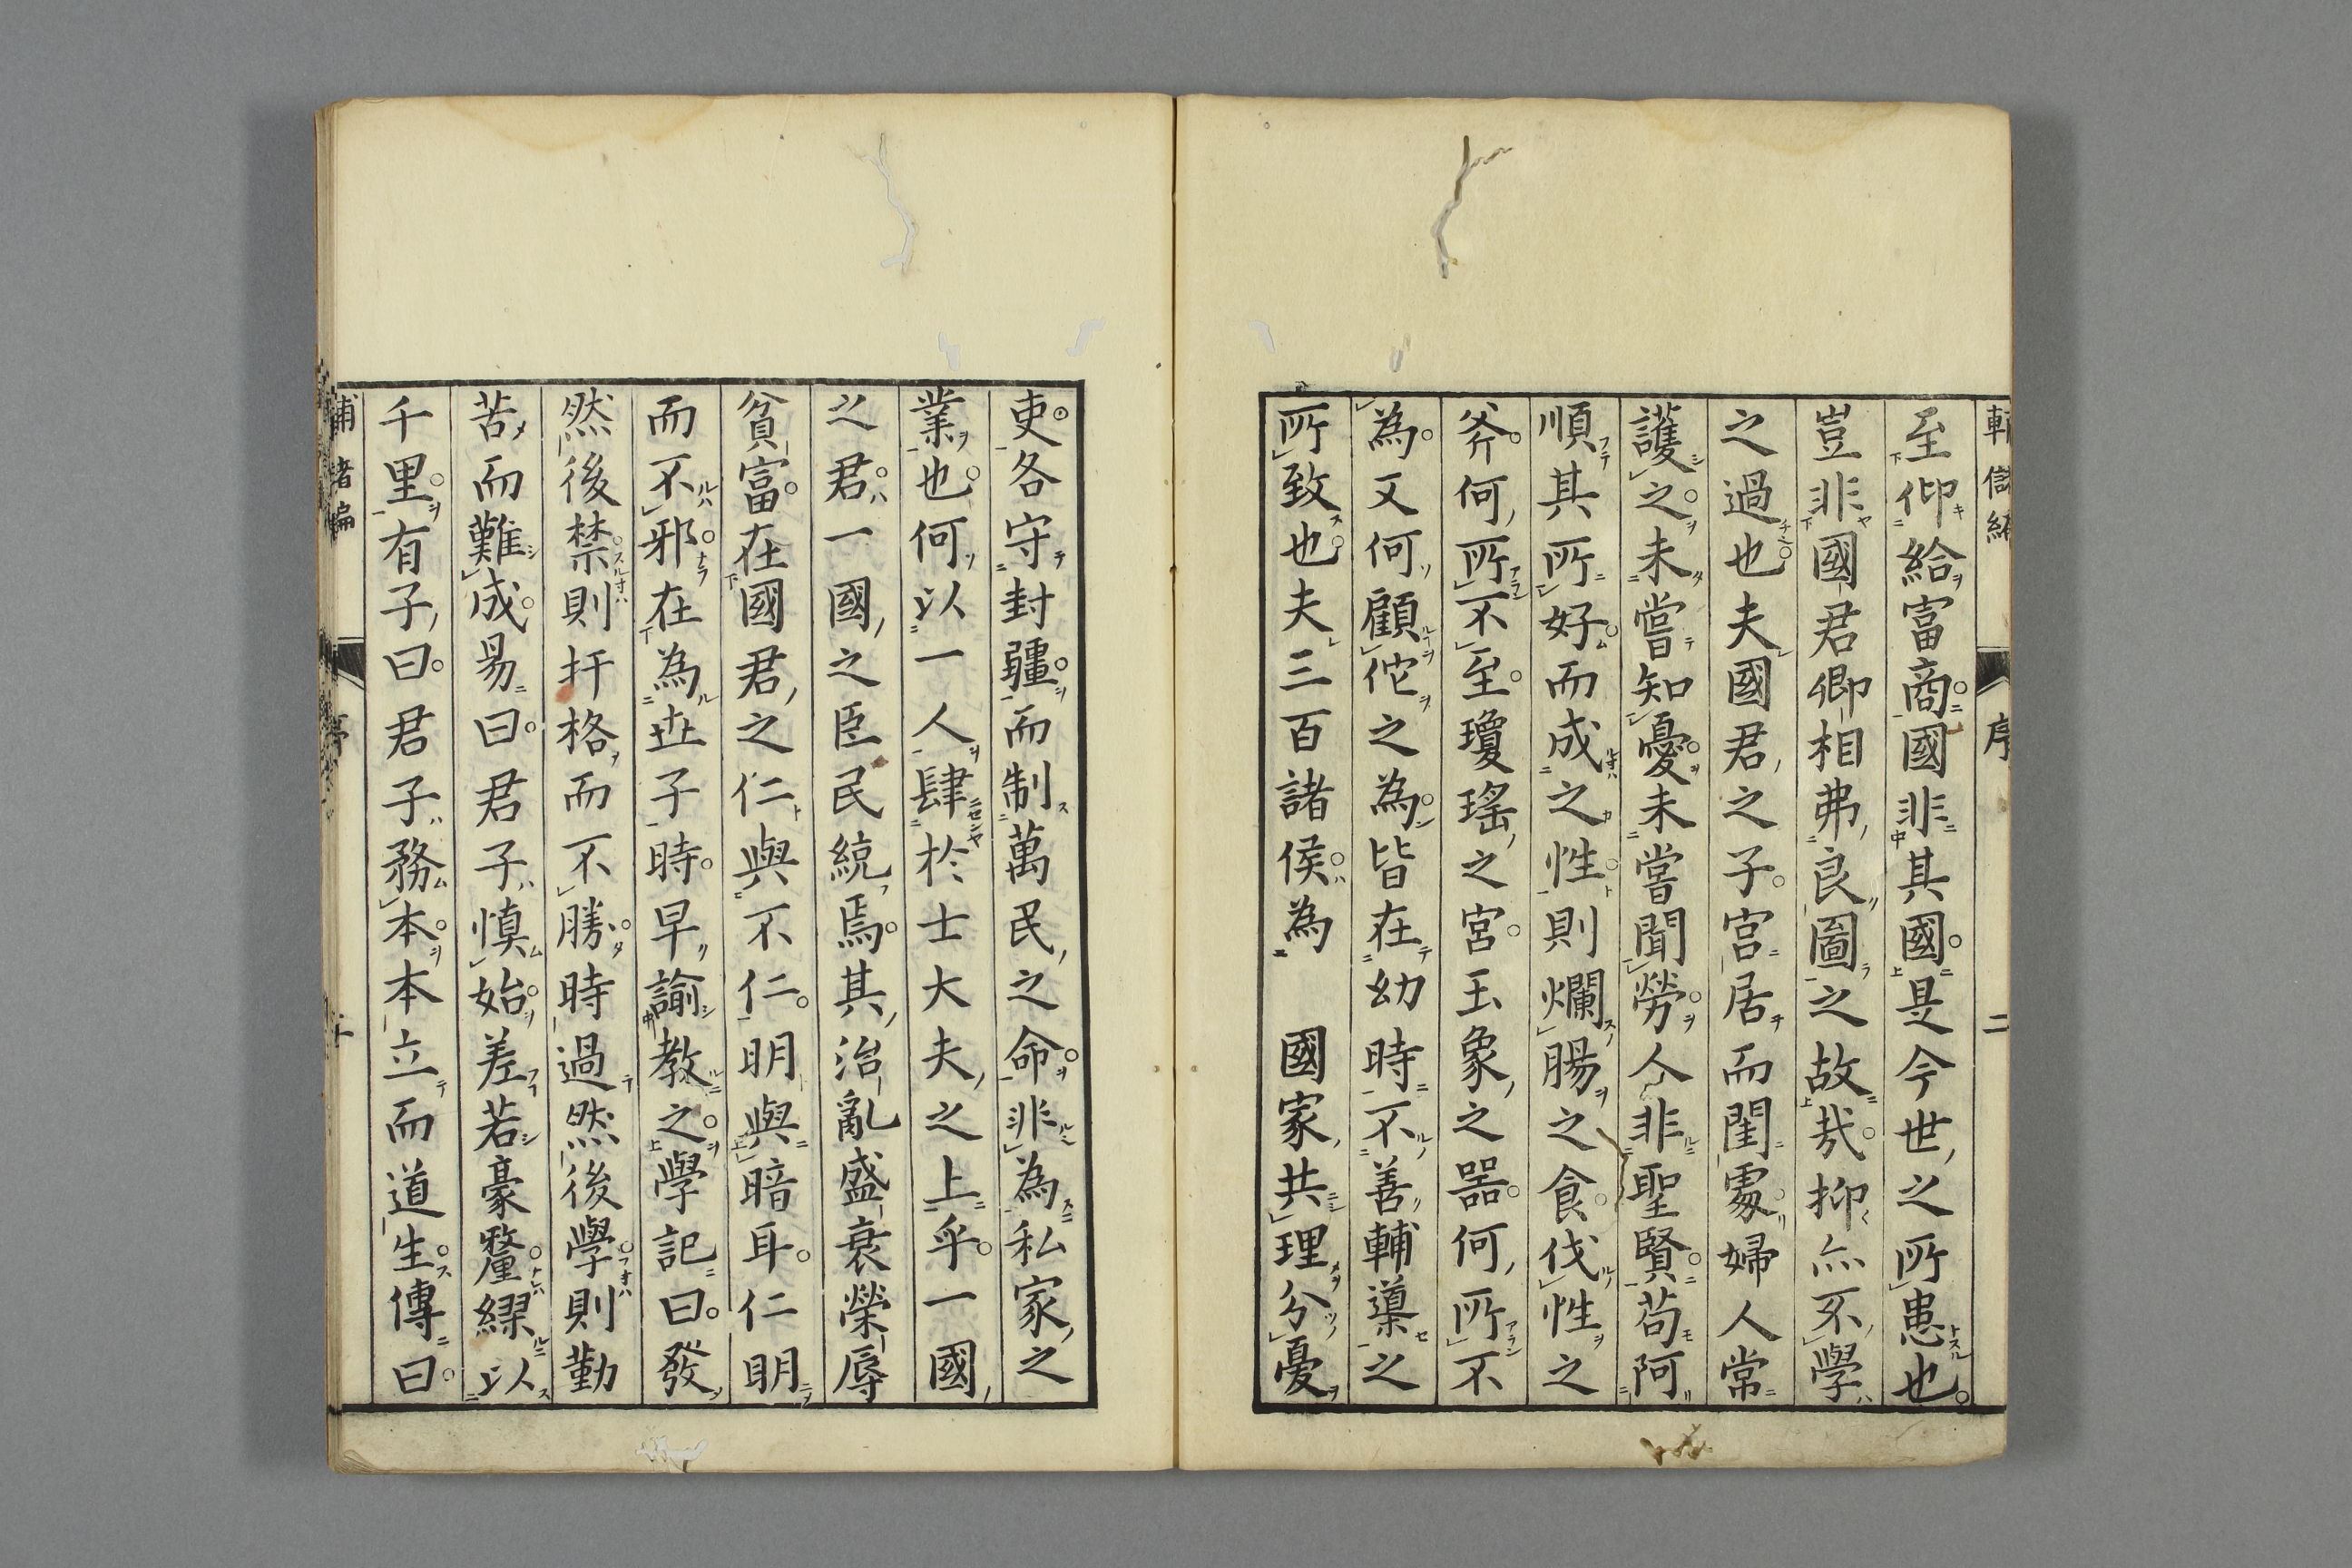 至仰給富商國非其國是今世之所患也
豈非國君卿相弗良圖之故哉抑亦不學
之過也夫國君之子宮居而閨處婦人常
護之未嘗知憂未嘗聞勞人非聖賢苟阿
順其所好而成之性則爛腸之食伐性之
斧何所不至瓊瑤之宮玉象之器何所不
為又何顧佗之為皆在幼時不善輔導之
所致也夫三百諸侯為 國家共理分憂
吏各守封疆而制萬民之命非為私家之
業也何以一人肆於士大夫之上乎一國
之君一國之臣民統焉其治亂盛衰榮辱
貧富在國君之仁與不仁明與暗耳仁明
而不邪在為世子時早諭教之學記曰發
然後禁則扞格而不勝時過然後學則勤
苦而難成易曰君子慎始差若豪釐繆以
千里有子曰君子務本本立而道生傳曰